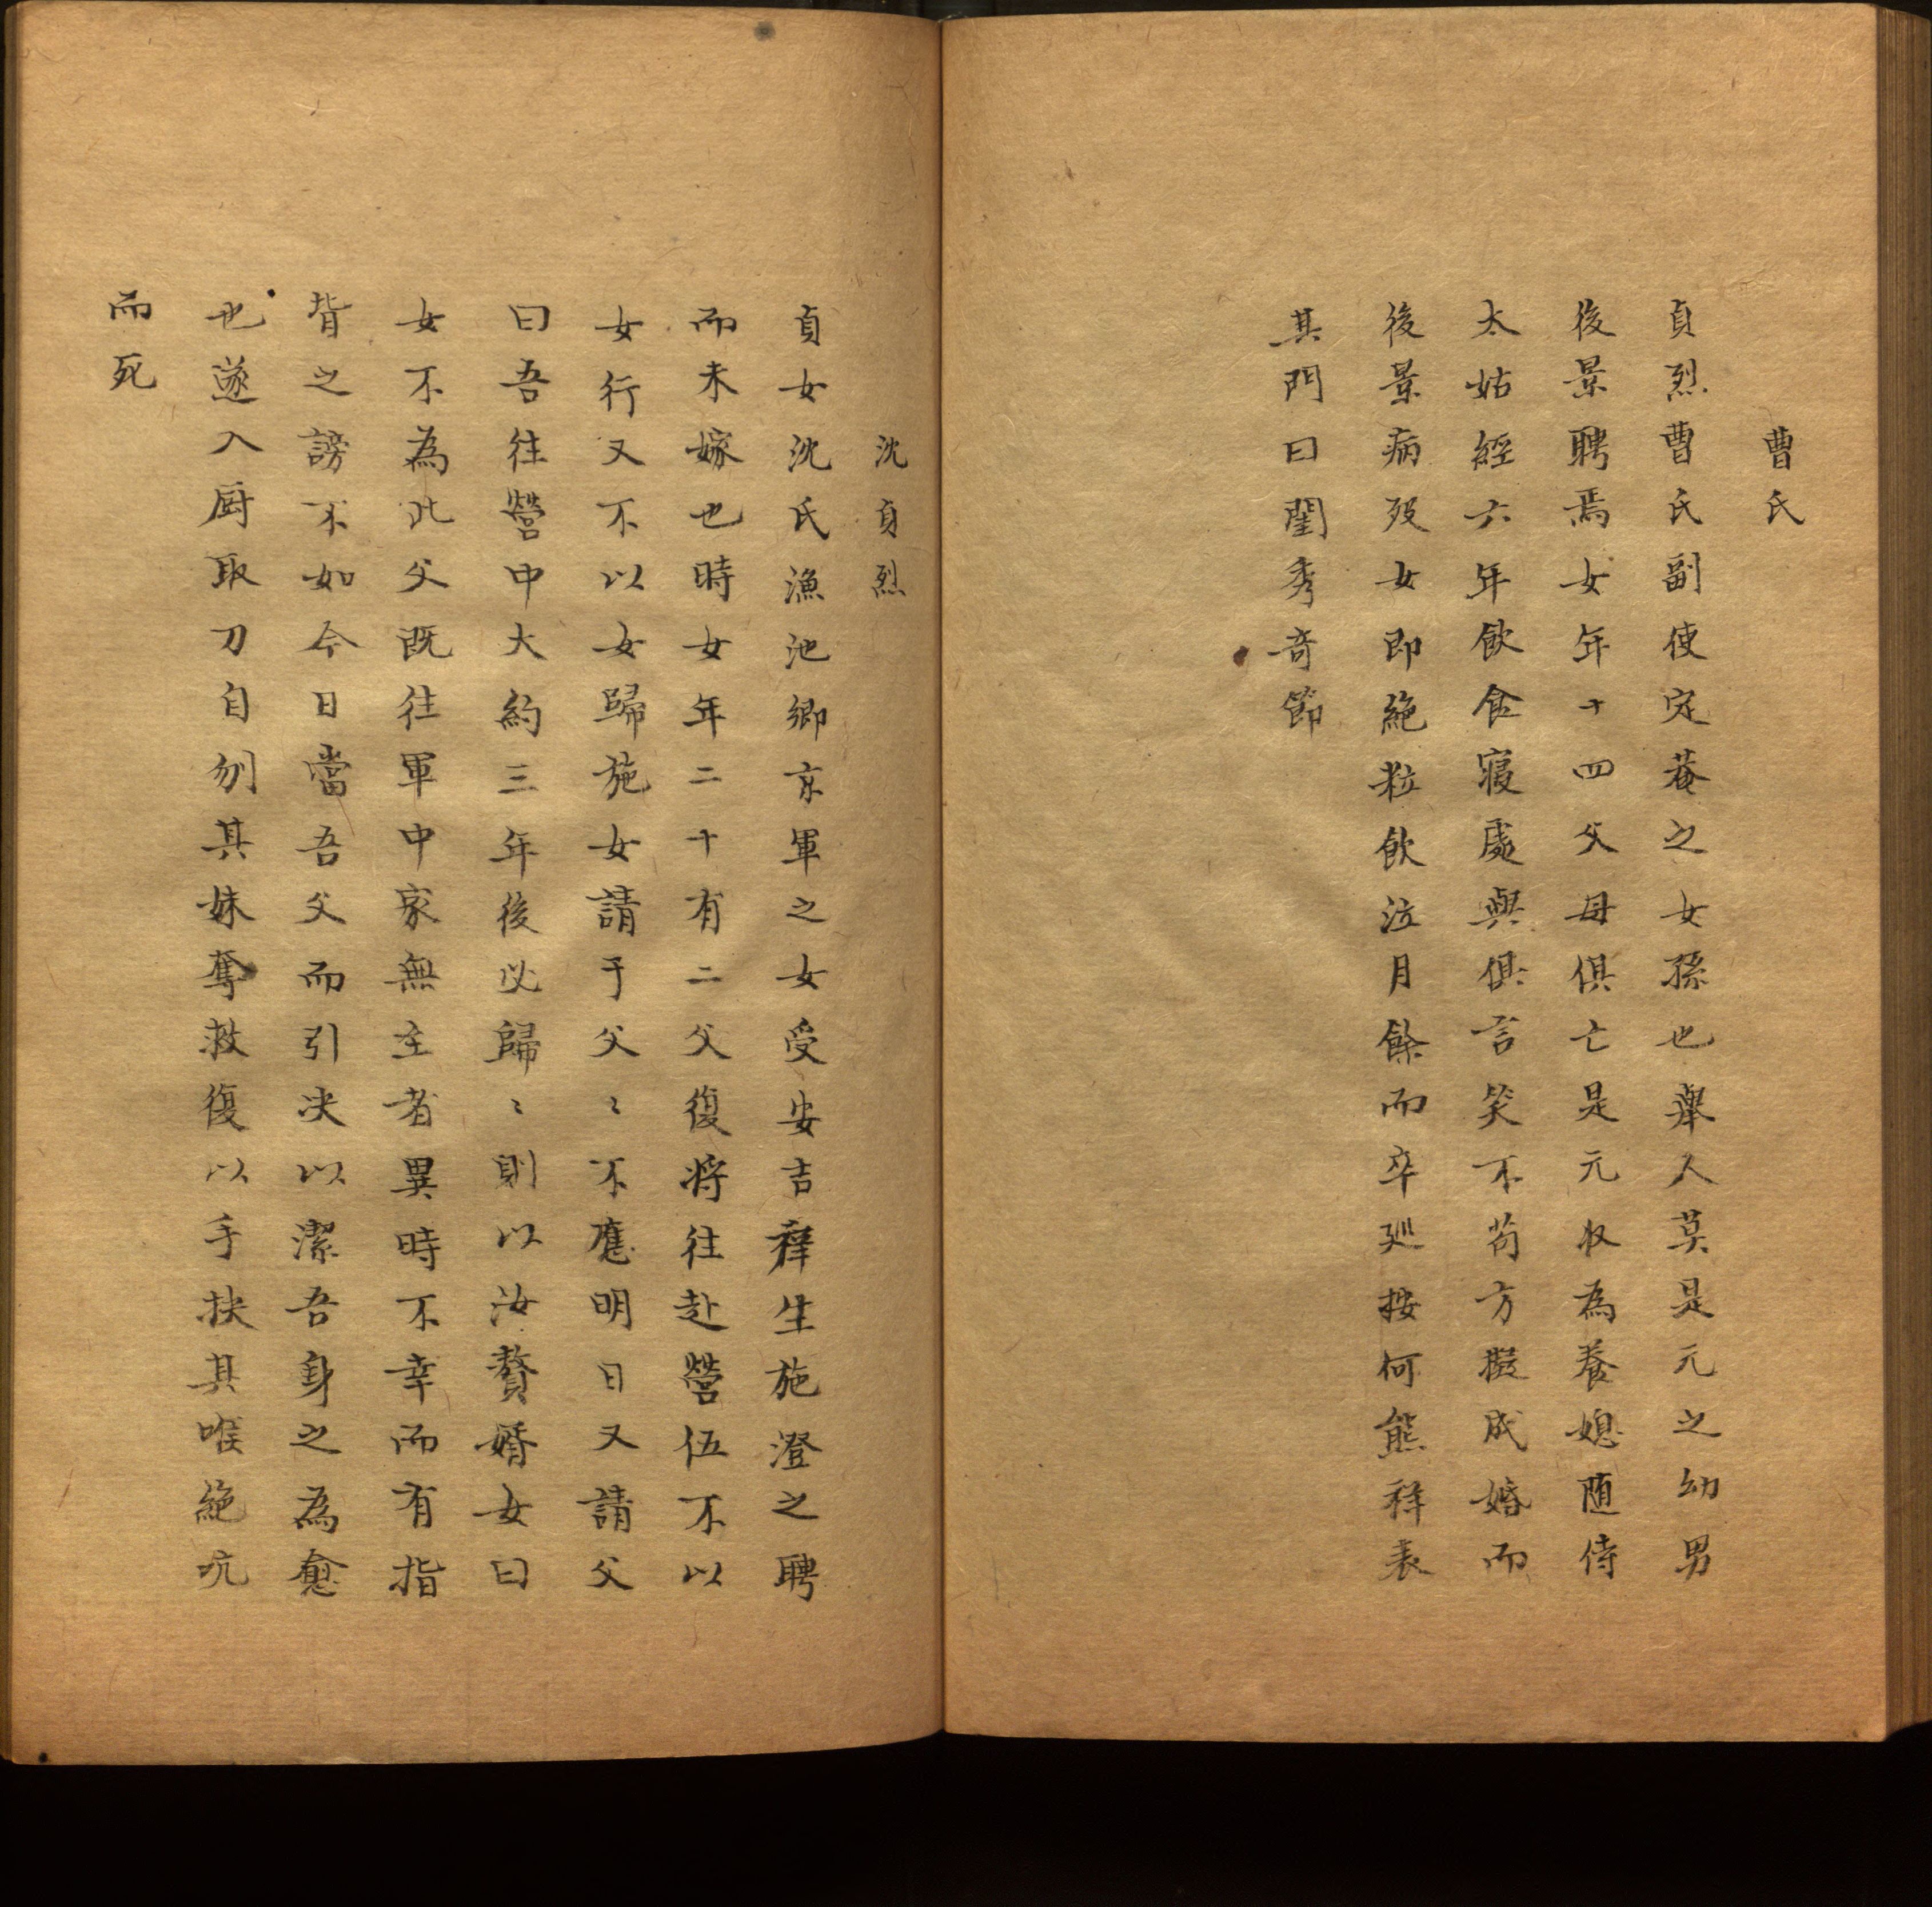 曹氏
貞烈曹氏副使定菴之女孫也舉人莫是元之幼男
後景聘焉女年十四父母俱亡是元收為養媳随侍
太姑經六年飲食寢處與俱言笑不苟方擬成婚而
後景病歿女即絶粒飲泣月餘而卒廵按何熊祥表
其門曰閨秀竒節
沈貞烈
貞女沈氏漁池鄉京軍之女受安吉庠生施澄之聘
而未嫁也時女年二十有二父復将往赴營伍不以
女行又不以女歸施女請于父〻不應明日又請父
曰吾往營中大約三年後必歸〻則以汝贅婿女曰
女不為此父既往軍中家無主者異時不幸而有指
背之謗不如今日當吾父而引决以潔吾身之為愈
也遂入厨取刀自刎其妹奪救復以手抉其喉絶吭
而死